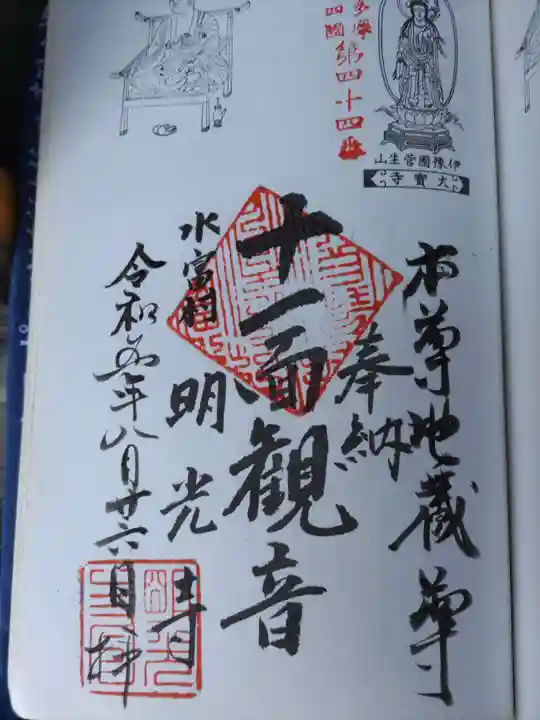 四國第四十四番
伊豫國菅生山
大寳寺
本尊地蔵尊
奉納
十一面観音
水富村
明光寺
令和五年八月廿六日拝